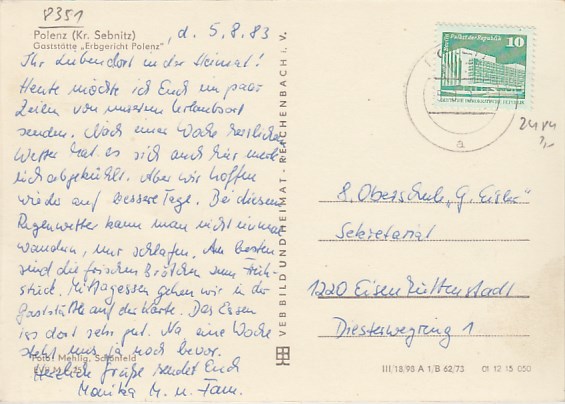 8351
Polenz (Kr. Sebnitz)
Gaststätte „Erbgericht Polenz"
d. 5.8.83
Ihr in der Heimat!
Heute möchte ich Euch ein paar
Zeilen von unserem Urlaubsort
senden. Nach einer Woche herrlichem
Wetter hat es sich auch hier merk-
lich abgekühlt. Aber wir hoffen
wieder auf bessere Tage. Bei diesem
Regenwetter kann man nicht einmal
wandern, nur schlafen. Am besten
sind die frischen Brötchen zum Früh-
stück. Mittagessen gehen wir in der
Gaststätte auf der Karte. Das Essen
ist dort sehr gut. Na eine Woche
steht uns ja noch bevor.
Foto: Mehlig, Schönfeld
Herzliche Grüße sendet Euch
Monika M. u. Fam.
VEB BILD UND HEIMAT · REICHENBACH i. V.
Berlin Palast der Republik
10
a
8. Oberschule „G. Eisler"
Sekretariat
1220 Eisenhüttenstadt
Diesterwegring 1
III/18/98 A 1/B 62/73 01 12 15 050